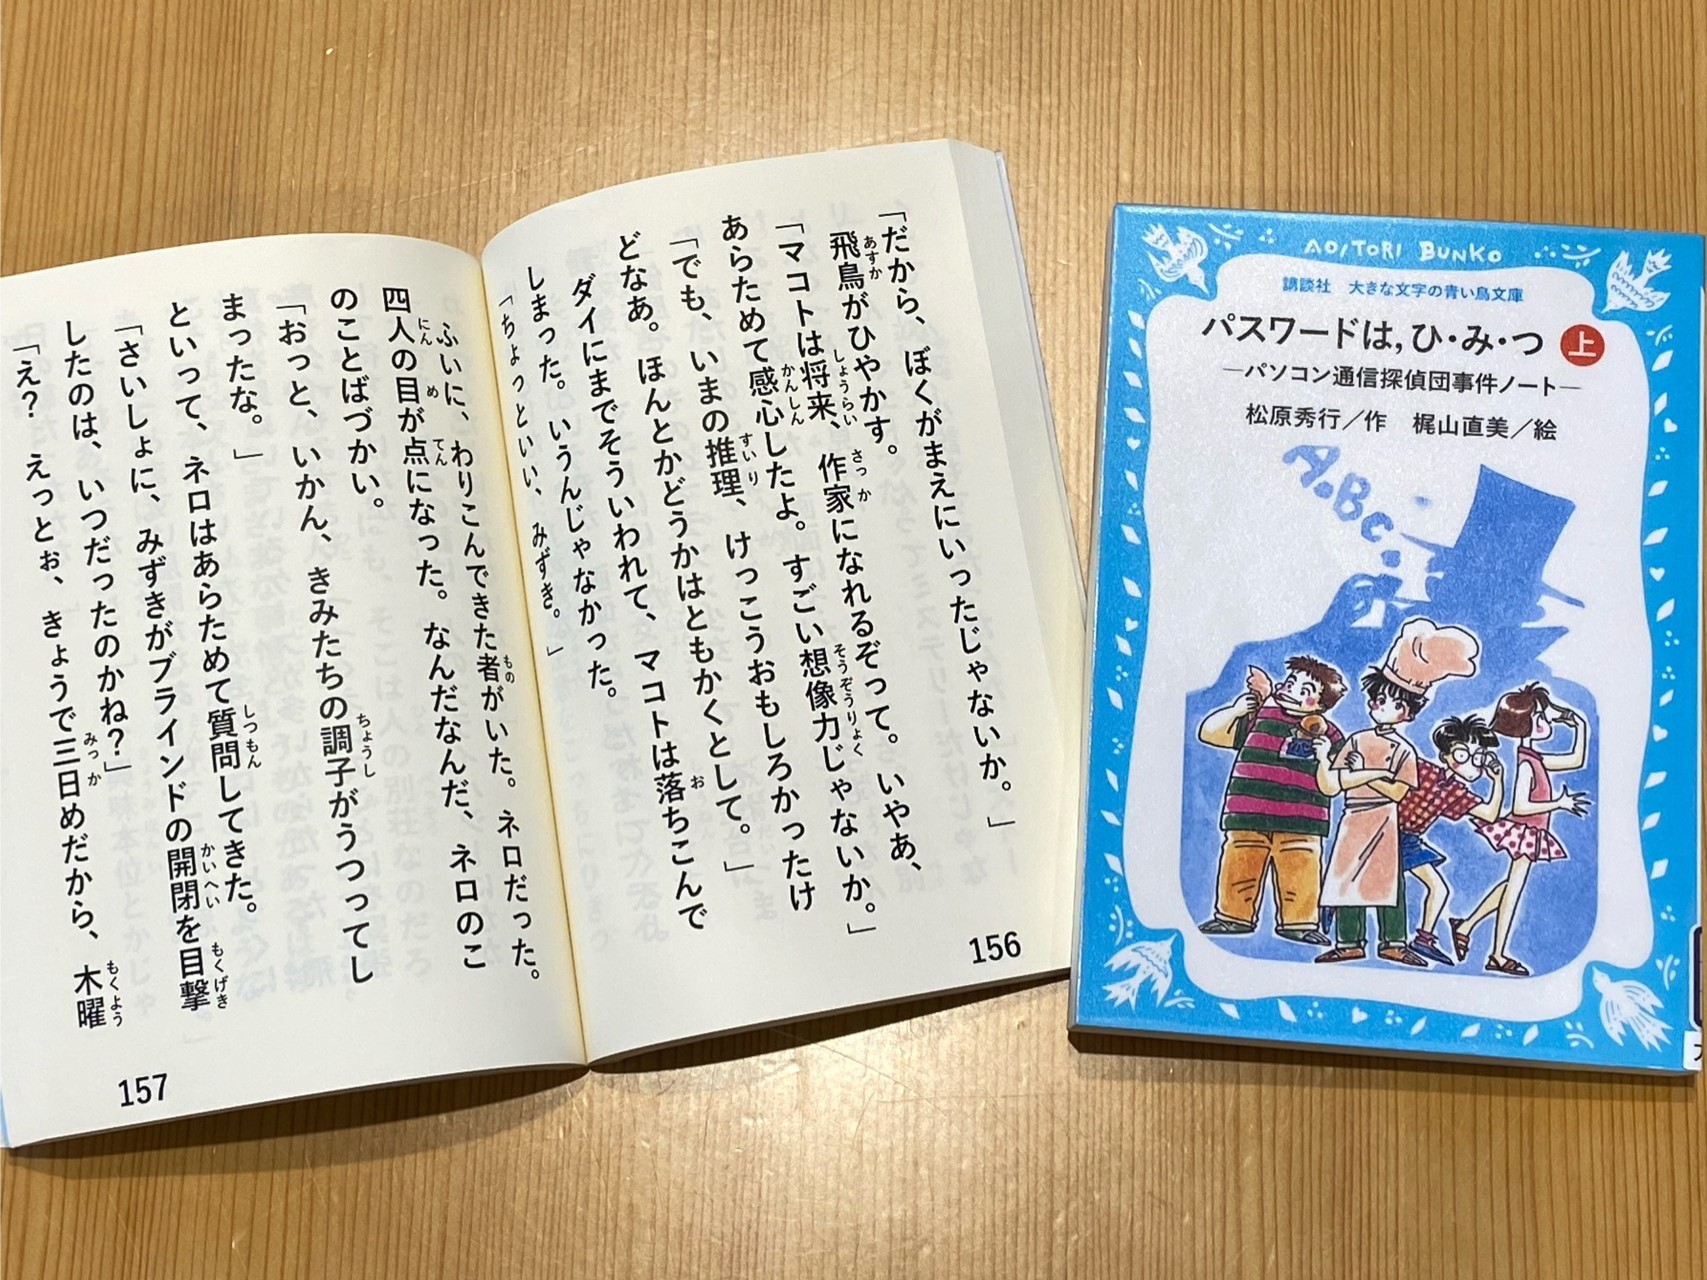 「だから、ぼくがまえにいったじゃないか。」
飛鳥がひやかす。
「マコトは将来、作家になれるぞって。いやあ、
あらためて感心したよ。すごい想像力じゃないか。」
「でも、いまの推理、けっこうおもしろかったけ
どなあ。ほんとかどうかはともかくとして。」
ダイにまでそういわれて、マコトは落ちこんで
しまった。いうんじゃなかった。
「ちょっといい、みずき。」
156
ふいに、わりこんできた者がいた。ネロだった。
四人の目が点になった。なんだなんだ、ネロのこ
のことばづかい。
「おっと、いかん、きみたちの調子がうつってし
まったな。」
といって、ネロはあらためて質問してきた。
「さいしょに、みずきがブラインドの開閉を目撃
したのは、いつだったのかね?」
「え? えっとぉ、きょうで三日めだから、木曜
157
AOITORI BUNKO
講談社 大きな文字の青い鳥文庫
パスワードは,ひ・み・つ 上
―パソコン通信探偵団事件ノート―
松原秀行/作 梶山直美/絵
A.B.C.